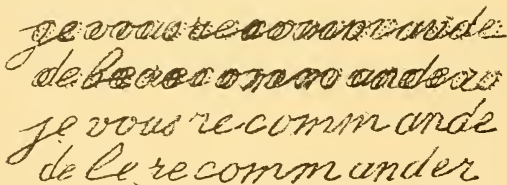 je vous recommande
de le recommander
je vous recommande
de le recommander